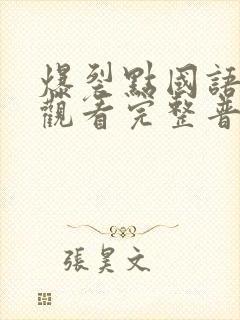 爆裂點國語
觀看完整普
張昊文